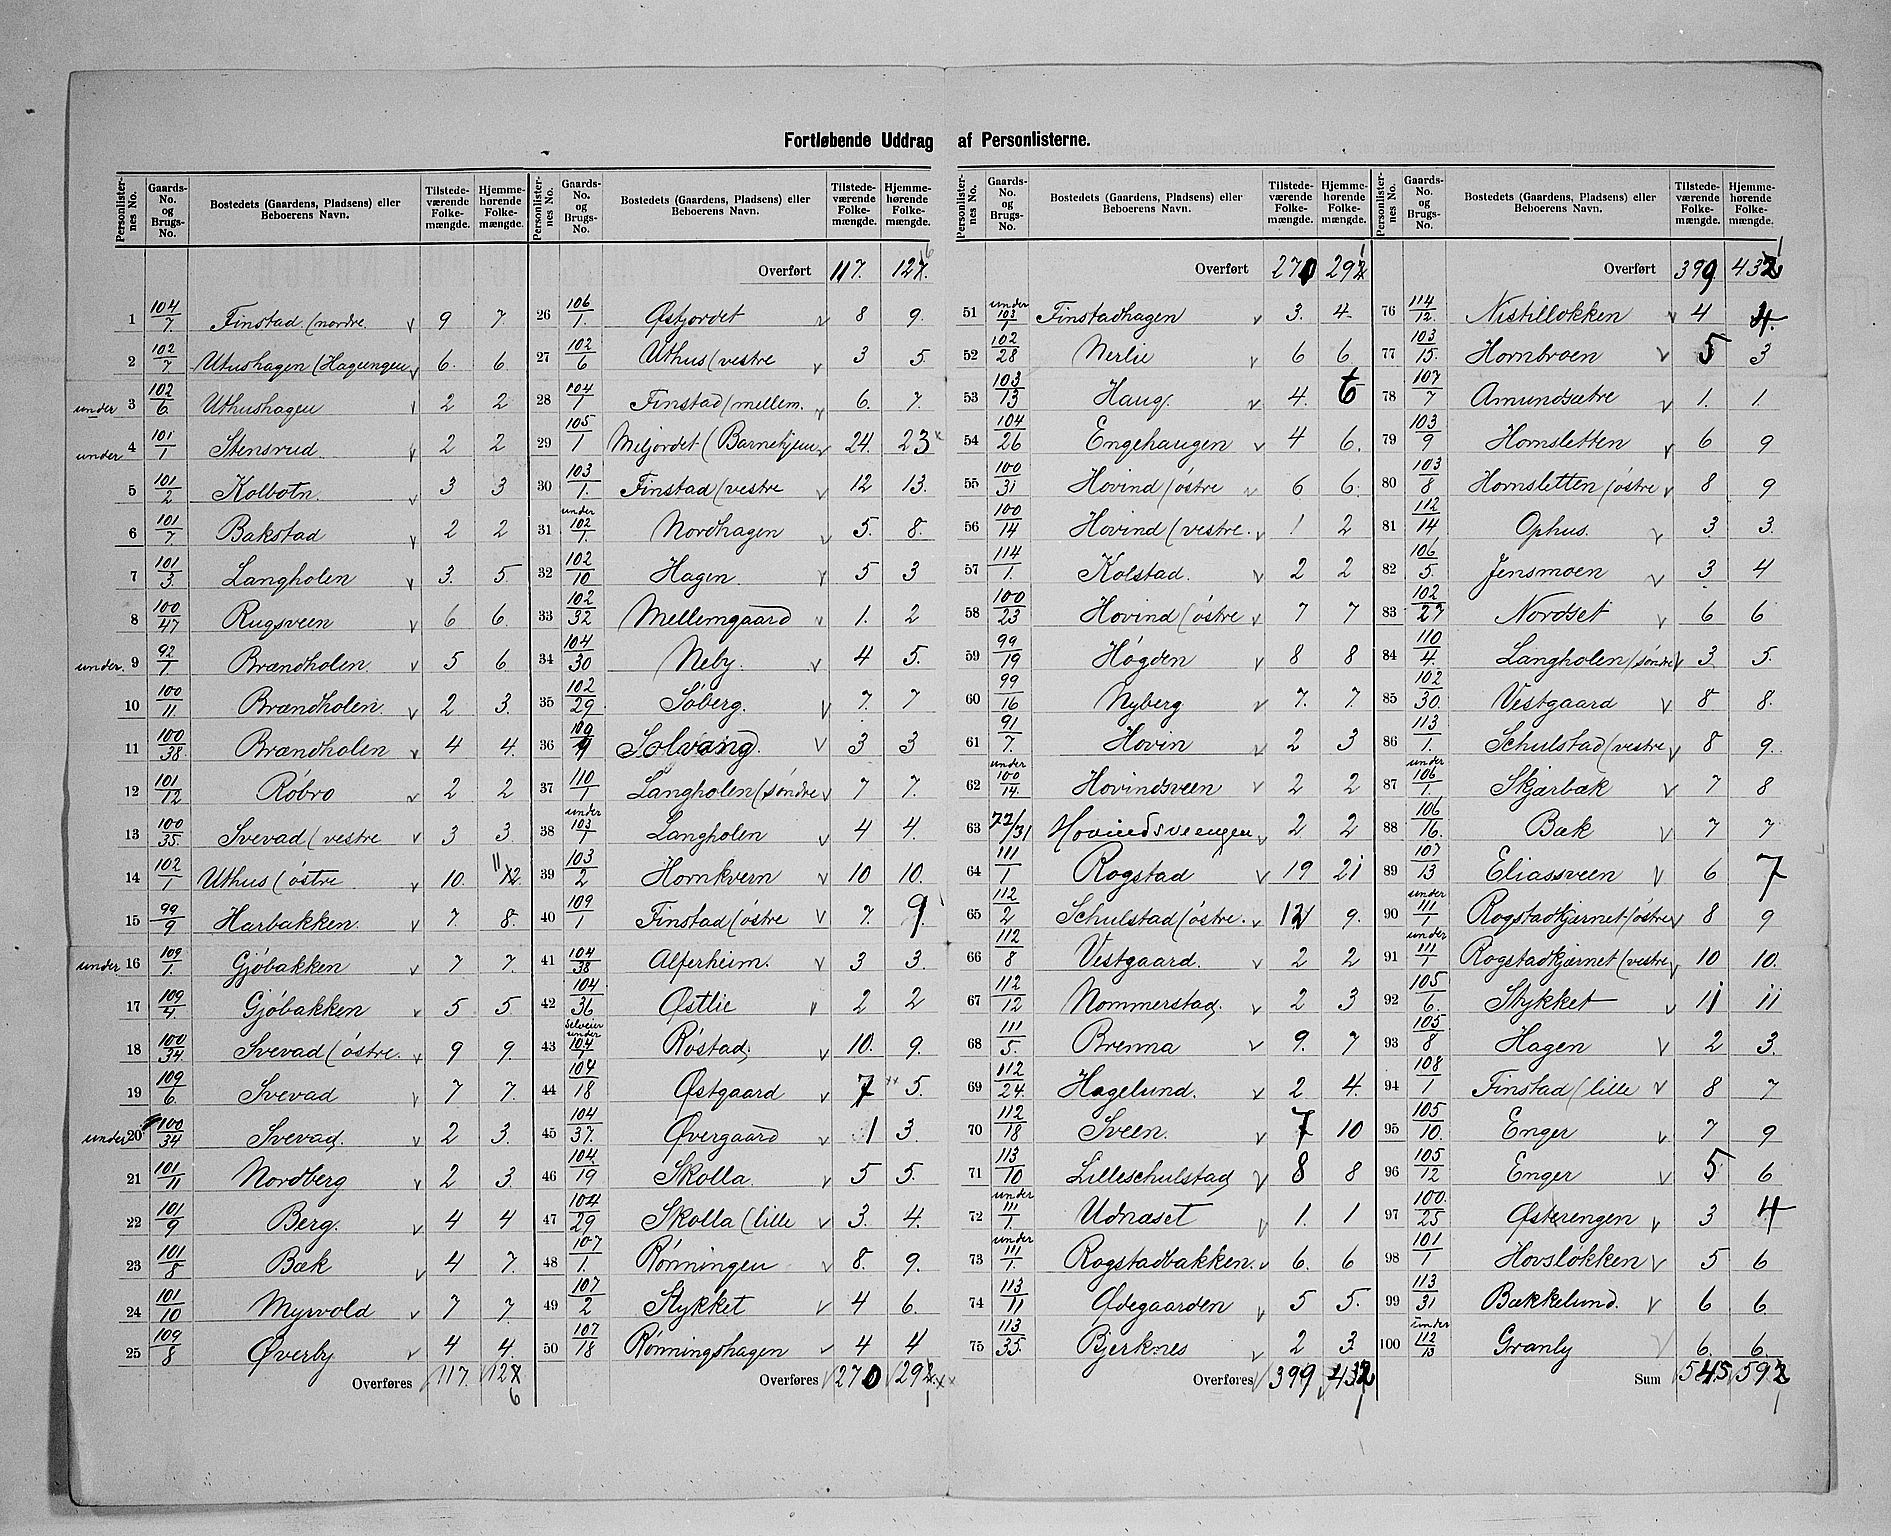 Fortløbende Uddrag af Personlisterne.
Personlister-nes No. | Gaards-No. og Brugs-No. | Bostedets (Gaardens, Pladsens) eller Beboerens Navn. | Tilstede-værende Folke-mængde. | Hjemme-hørende Folke-mængde.
1 104/7 Finstad (nordre v 9 7
2 102/7 Uthushagen (Hagaengen v 6. 6.
under 3 102/6. Uthushagen v 2 2
under 4 101/1 Stensrud v 2 2
5 101/2 Kolbotn v 3 3
6 101/7 Bakstad v 2 2
7 101/3 Langholen v 3. 5.
8 100/47 Rugsveen v 6 6.
under. 9 92/1 Brændholen v 5 6
10 100/11. Brændholen. v 2 3.
11 100/38. Brændholen v 4 4.
12 101/12 Røbro v 2 2
13 100/35. Svevad (vestre v 3 3.
14 102/1 Uthus (østre v 10. 11 12.
15 99/9 Harbakken. v 7. 8.
under 16 109/1. Gjøbakken v 7 7.
17 109/4 Gjøbakken v 5 5
18 100/34. Svevad (østre. v 9 9.
19 109/6. Svevad v 7 7.
under 20 100/34 Svevad. v 2 3.
21 101/11 Nordberg v 2 3.
22 101/9 Berg. v 4 4
23 101/8 Bæk v 4 7.
24 101/10 Myrvold v 7 7.
25 109/8 Øverby v 4 4.
Overføres 117. 127 6
Personlister-nes No. | Gaards-No. og Brugs-No. | Bostedets (Gaardens, Pladsens) eller Beboerens Navn. | Tilstede-værende Folke-mængde. | Hjemme-hørende Folke-mængde.
Overført 117. 127. 6
26 106/1. Østjordet v 8 9.
27 102/6 Uthus (vestre v 3 5.
28 104/1 Finstad (mellem. v 6. 7.
29 105/1 Miljordet (Barnehjem v 24. 23 x
30 103/1. Finstad (vestre v 12 13.
31 under 102/1. Nordhagen v 5. 8.
32 102/10 Hagen v 5 3
33 102/32 Mellemgaard v 1. 2
34 104/30 Neby. v 4 5.
35 102/29 Søberg. v 7. 7
36 100/9 Solvang. v 3 3
37 110/1 Langholen (søndre v 7 7.
38 under 103/1 Langholen v 4 4.
39 103/2 Hornkvern v 10 10.
40 109/1 Finstad (østre v 7. 9.
41 104/38 Alferheim. v 3 3.
42 104/36 Østlie v 2 2
43 Selveier under 104/1 Røstad. v 10. 9.
44 104/18 Østgaard v 7 xx 5.
45 104/37. Øvergaard v 1 3.
46 104./19 Skolla. v 5 5.
47 104/29 Skolla (lille v 3. 4.
48 107/1. Rønningen v 8. 9.
49 107/2 Stykket v 4 6.
50 107/18 Rønningshagen v 4 4
Overføres 270 292 xx 1
Personlister-nes No. | Gaards-No. og Brugs-No. | Bostedets (Gaardens, Pladsens) eller Beboerens Navn. | Tilstede-værende Folke-mængde. | Hjemme-hørende Folke-mængde.
Overført 270 292 1
51 under 103/1 Finstadhagen v 3. 4.
52 102/28 Nerlie v 6 6.
53 103/13 Haug. v 4. 6
54 104/26 Engehaugen v 4 6.
55 100/31 Hovind (østre v 6 6.
56 100/14 Hovind (vestre. v 1 2
57 114/1. Kolstad. v 2 2
58 100/23 Hovind (østre v 7 7
59 99/19 Høgden v 8 8
60 99/16 Nyberg v 7. 7.
61 91/7. Hovin v 2 3
62 under 100/14. Hovindsveen v 2 2
63 77/31 Hovindsveengen v 2 2
64 111/1 Rogstad v 19 21
65 112/2 Schulstad (østre. v 12 9.
66 112/8 Vestgaard. v 2 2
67 112/12 Nommerstad. v 2 3
68 111/5. Brenna v 9. 7
69 112/24. Hagelund. v 2 4.
70 112/18 Sveen. v 7 10
71 113/10 Lilleschulstad v 8 8
72 under 111/1. Udnæset v 1. 1
73 under 111/1. Rogstadbakken. v 6. 6
74 113/11 Ødegaarden v 5 5.
75 113/35. Bjerknes v 2 3.
Overføres 399 432 1
Personlister-nes No. | Gaards-No. og Brugs-No. | Bostedets (Gaardens, Pladsens) eller Beboerens Navn. | Tilstede-værende Folke-mængde. | Hjemme-hørende Folke-mængde.
Overført 399. 432 1
76 114/12. Nistilløkken v 4 4.
77 103/15. Hornbroen v 5 3
78 107/7 Amundsætre v 1. 1.
79 103/9 Hornsletten v 6 9
80 103/8 Hornsletten (østre v 8 9
81 112/14 Ophus. v 3 3.
82 106/5. Jensmoen v 3 4
83 102/27 Nordset v 6 6
84 110/4. Langholen (søndre v 3. 5.
85 102/30. Vestgaard v 8 8.
86 113/1. Schulstad (vestre v 8 9.
87 under 106/1. Skjærbæk v 7 8
88 106/16. Bæk v 7 7
89 107/13 Eliassveen v 6 7
90 under 111/1 Rogstadkjærnet (østre v 8 9
91 under 111/1 Rogstadkjærnet (vestre v 10 10.
92 105/6. Stykket v 11 11
93 105/8 Hagen v 2 3.
94 108/1 Finstad (lille v 8 7
95 105/10. Enger v 7 9
96 105/12 Enger v 5 6
97 100./25 Østerengen v 3 4
98 101/1 Hovsløkken v 5 6
99 113/31 Bækkelund. v 6 6
100 under 112/13 Granly v 6. 6.
Sum 545 592 1